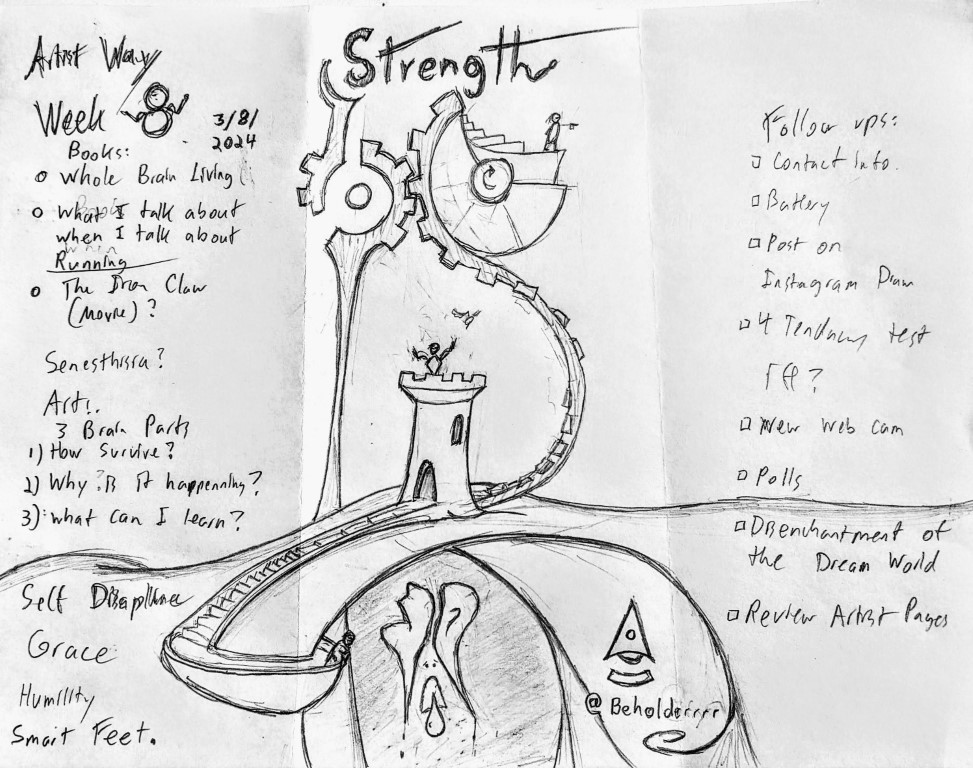 Strength
Artist Way
Week 8
3/8/
2024
Books:
Whole Brain Living
What I talk about
when I talk about
Running
The Iron Claw
(Movie)?
Senesthisia?
Art!.
3 Brain Parts
1) How survive?
2) Why is it happenning?
3) What can I learn?
Self Disapline
Grace
Humility
Smart Feet.
Follow ups:
Contact Info.
Battery
Post on
Instagram Draw
4 Tendancy test
New web cam
Polls
Disenchantment of
the Dream World
Review Artist Pages
@Beholderrrr